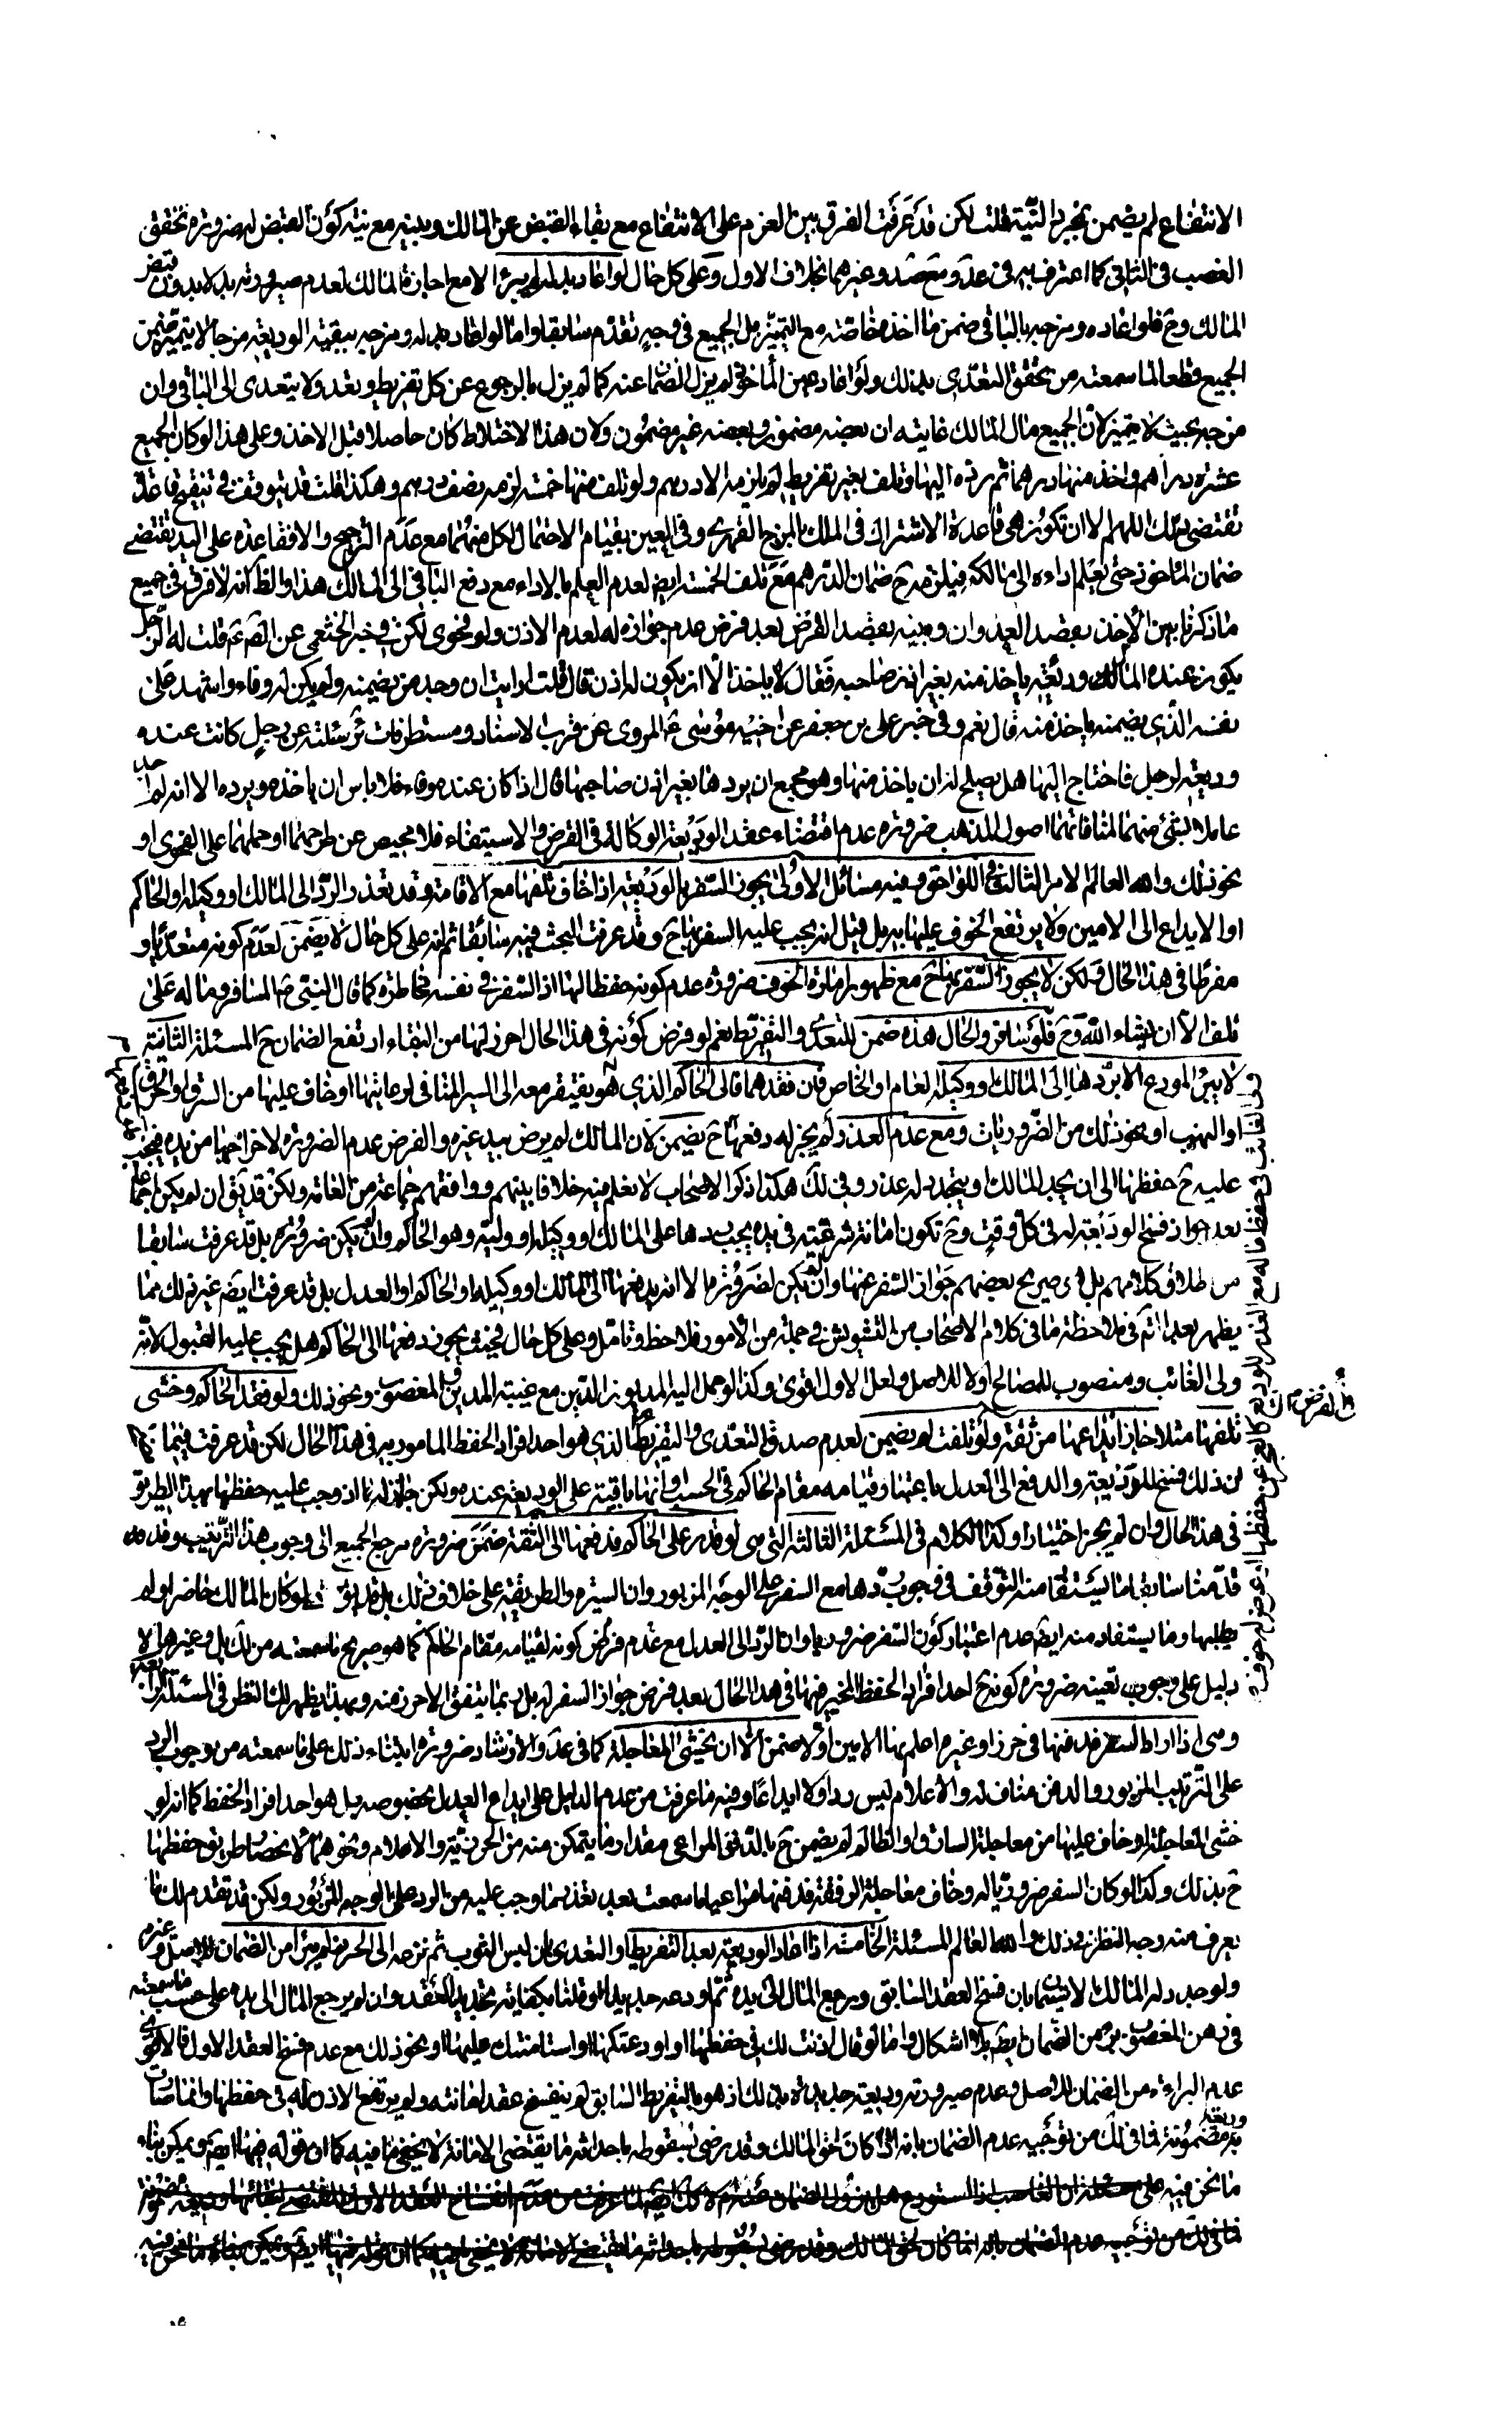 الانتفاع لم يضمن بمجرد النية قلت لكن قد عرفت الفرق بين العزم على الانتفاع مع بقاء القبض عن المالك وبينه مع نيته كون القبض له ضرورة تحقق
الغصب في الثاني كما اعترف به في عد ومع صد وغيرهما بخلاف الاول وعلى كل حال لو اعاد بدله لم يبرأ الا مع اجازة المالك لعدم صيرورته بدلا بدون قبض
المالك وح فلو اعاده ومزجه بالباقي ضمن ما اخذه خاصة مع التميز بل الجميع في وجه تقدم سابقا واما لو اعاد بدله ومزجه ببقية الوديعة مزجا لا يتميز ضمن
الجميع قطعا لما سمعته من تحقق التعدي بذلك ولو اعاد عين المأخوذ لم يزل الضمان عنه كما لم يزل بالرجوع عن كل تفريط وتعد ولا يتعدى الى الباقي وان
مزجه بحيث لا يتميز لان الجميع مال المالك غايته ان بعضه مضمون وبعضه غير مضمون ولان هذا الاختلاط كان حاصلا قبل الاخذ وعلى هذا لو كان الجميع
عشرة دراهم واخذ منها درهما ثم رده اليها وتلف بغير تفريط لم يلزمه الا درهم ولو تلف منها خمسة لزمه نصف درهم وهكذا قلت قد يتوقف في تنقيح قاعدة
تقتضي ذلك اللهم الا ان تكون هي قاعدة الاشتراك في الملك بالمزج القهري وفي العين بقيام الاحتمال لكل منهما مع عدم الترجيح والا فقاعدة على اليد تقتضي
ضمان المأخوذ حتى يعلم اداءه الى مالكه فيلزمه ح ضمان الدرهم مع تلف الخمسة ايض لعدم العلم بالاداء مع دفع الباقي الى المالك هذا والظ انه لا فرق في جميع
ما ذكرنا بين الاخذ بقصد العدوان وبينه بقصد القرض بعد فرض عدم جوازه له لعدم الاذن ولو فحوى لكن في خبر الخثعمي عن الص ع قلت له الرجل
يكون عنده المال وديعة يأخذ منه بغير اذن صاحبه فقال لا يأخذ الا ان يكون له اذن قال قلت ارايت ان وجد من يضمنه ولم يكن له وفاء واشهد على
نفسه الذي يضمنه يأخذ منه قال نعم وفي خبر علي بن جعفر عن اخيه موسى ع المروي عن قرب الاسناد ومستطرفات ئر سئلته عن رجل كانت عنده
وديعة لرجل فاحتاج اليها هل يصلح له ان يأخذ منها وهو مجمع ان يردها بغير اذن صاحبها قال اذا كان عنده وفاء فلا باس ان يأخذه ويرده الا انه لم اجد
عاملا بشئ منهما لمنافاتهما اصول المذهب ضرورة عدم اقتضاء عقد الوديعة الوكالة في القرض والاستيفاء فلا محيص عن طرحهما او حملهما على الفحوى او
نحو ذلك والله العالم الامر الثالث في اللواحق وفيه مسائل الاولى يجوز السفر بالوديعة اذا خاف تلفها مع الاقامة وقد تعذر الرد الى المالك او وكيله او الحاكم
او الايداع الى الامين ولا يرتفع الخوف عليها به بل قيل انه يجب عليه السفر بها ح وقد عرفت البحث فيه سابقا ثم انه على كل حال لا يضمن لعدم كونه متعديا او
مفرطا في هذا الحال ولكن لا يجوز السفر بها ح مع ظهور امارة الخوف ضرورة عدم كونه حفظا لها اذ السفر في نفسه مخاطرة كما قال النبي ص المسافر وماله على
تلف الا ان يشاء الله وح فلو سافر والحال هذه ضمن للتعدي والتفريط نعم لو فرض كونه في هذا الحال احرز لها من البقاء ارتفع الضمان ح المسئلة الثانية
لا يبرأ المودع الا بردها الى المالك او وكيله العام او الخاص فان فقدهما فالى الحاكم الذي هو يفتقر معه الى السير المنافي لرعايتها او خاف عليها من السرق او الحرق
او النهب او نحو ذلك من الضروريات ومع عدم العذر لم يجز له دفعها ح يضمن لان المالك لم يرض بيد غيره والفرض عدم الضرورة لاخراجها من يده فيجب
عليه ح حفظها الى ان يجد المالك او يتجدد له عذر وفي لك هكذا ذكره الاصحاب لا نعلم فيه خلافا بينهم ووافقهم جماعة من العامة ولكن قد يق ان لم يكن اجماعا
بعد جواز فسخ الوديعة له في كل وقت وح تكون امانة شرعية في يده يجب ردها على المالك او وكيله او وليه وهو الحاكم وان لم يكن ضرورة بل قد عرفت سابقا
من اطلاق كلامهم بل في صريح بعضهم جواز السفر عنها وان لم يكن لضرورة الا انه يدفعها الى المالك او وكيله او الحاكم او العدل بل قد عرفت ايض غير ذلك مما
يظهر بعد التأمل في ملاحظة ما في كلام الاصحاب من التشويش في جملة من الامور فلاحظ وتامل وعلى كل حال فحيث يجوز دفعها الى الحاكم هل يجب عليه القبول لانه
ولي الغائب ومنصوب للمصالح او لا للاصل ولعل الاول اقوى وكذا لو حمل اليه المديون الدين مع غيبة المدين والمغصوب ونحو ذلك ولو فقد الحاكم وخشي
تلفها مثلا جاز ايداعها من ثقة ولو تلفت لم يضمن لعدم صدق التعدي والتفريط الذي هو احد افراد الحفظ المامور به في هذا الحال لكن قد عرفت فيما تقدم
ان ذلك فسخ للوديعة والدفع الى العدل باعتبار قيامه مقام الحاكم في الحسب وانها باقية على الوديعة عنده ولكن جاز له ذلك اذ وجب عليه حفظها بهذا الطريق
في هذا الحال وان لم يجز اختيارا وكذا الكلام في المسئلة الثالثة التي هي لو قدر على الحاكم فدفعها الى الثقة ضمن ضرورة مرجع الجميع الى وجوب هذا الترتيب وقد
قدمنا سابقا ما يستفاد منه التوقف في وجوب ردها مع السفر على الوجه المزبور وان السيرة والطريقة على خلاف ذلك بل قد يؤ لو كان المالك حاضرا ولم
يطلبها وما يستفاد منه ايض عدم اعتبار كون السفر ضروريا وان الرد الى العدل مع عدم فرض كونه لقيامه مقام الحاكم كما هو صريح ما سمعته من لك بل وغيرها لا
دليل على وجوب تعينه ضرورة كونه ح احد افراد الحفظ المخير فيها في هذا الحال بعد فرض جواز السفر له بل ربما يتفق الاحرز منه وبهذا يظهر لك النظر في المسئلة الرابعة
وهي اذا اراد السفر فدفنها في حرز او غيره اعلم بها الامين او لا ضمن الا ان يخشى المعاجلة كما في عد والارشاد ضرورة ابتناء ذلك على ما سمعته من وجوب الرد
على الترتيب المزبور والدفن مناف له والاعلام ليس ردا ولا ايداعا وفيه ما عرفت من عدم الدليل على ايداع العدل بخصوصه بل هو احد افراد الحفظ كما انه لو
خشي المعاجلة او خاف عليها من معاجلة السارق او الظالم لم يضمن ح بالدفن المراعى مقدار ما يتمكن منه من الحرزية والاعلام ونحوهما لانحصار طريق حفظها
ح بذلك وكذا لو كان السفر ضروريا له وخاف معاجلة الرفقة فدفنها مراعيا ما سمعت بعد تعذر ما وجب عليه من الرد على الوجه المزبور ولكن قد تقدم لك ما
يعرف منه وجه النظر في ذلك والله العالم المسئلة الخامسة اذا اعاد الوديعة بعد التفريط او التعدي بان لبس الثوب ثم نزعه الى الحرز لم يبرأ من الضمان للاصل وغيره
ولو جدد له المالك الاستيمان بان فسخ العقد السابق ورجع المال الى يده ثم اودعه جديدا او قلنا بكفاية تجديد العقد وان لم يرجع المال الى يده على حسب ما سمعته
في رهن المغصوب برء من الضمان بلا اشكال واما لو قال اذنت لك في حفظها او اودعتكها او استامنتك عليها او نحو ذلك مع عدم فسخ العقد الاول فالاقوى
عدم البراءة من الضمان للاصل وعدم صيرورته وديعة جديدة بذلك اذ هو بالتفريط السابق لم ينفسخ عقد امانته ولم يرتفع الاذن له في حفظها وانما صارت
به مضمونة فما في لك من توجيه عدم الضمان بانه انما كان لحق المالك وقد رضي بسقوطه باحداثه ما يقتضي الامانة لا يخفى ما فيه كما ان قوله فيها ايض ويمكن بناء
ما نحن فيه على مسئلة ان الغاصب اذا استودع هل يزول الضمان عنه ام لا كك ايض لما عرفت من عدم انفساخ العقد الاول المقتضي لبقائها وديعة مضمونة
فما في لك من توجيه عدم الضمان بانه انما كان لحق المالك وقد رضي بسقوطه باحداثه ما يقتضي الامانة لا يخفى ما فيه كما ان قوله فيها ايض ويمكن بناء ما نحن فيه